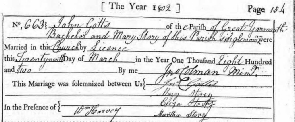 [The Year 1802] Page 184
No. 663 } John Cotts of the Parish of Great Yarmouth
Batchelor and Mary Story of this Parish Singlewoman were
Married in this Church by Licence
this Twenty Day of March in the Year One Thousand Eight Hundred
and two By me Minr.
This Marriage was solemnized between Us { J Cotts
Mary Story
In the Presence of { Wm Harvey
Martha Story